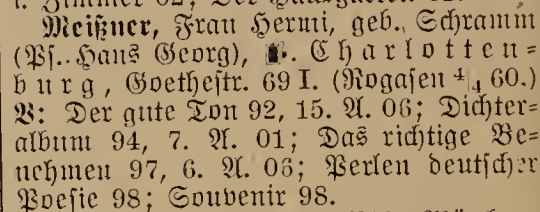 Meißner, Frau Hermi, geb. Schramm
(Ps. Hans Georg), Charlotten=
burg, Goethestr. 69 I. (Rogasen 4/4 60.)
V: Der gute Ton 92, 15. A. 06; Dichter=
album 94, 7. A. 01; Das richtige Be=
nehmen 97, 6. A. 05; Perlen deutscher
Poesie 98; Souvenir 98.